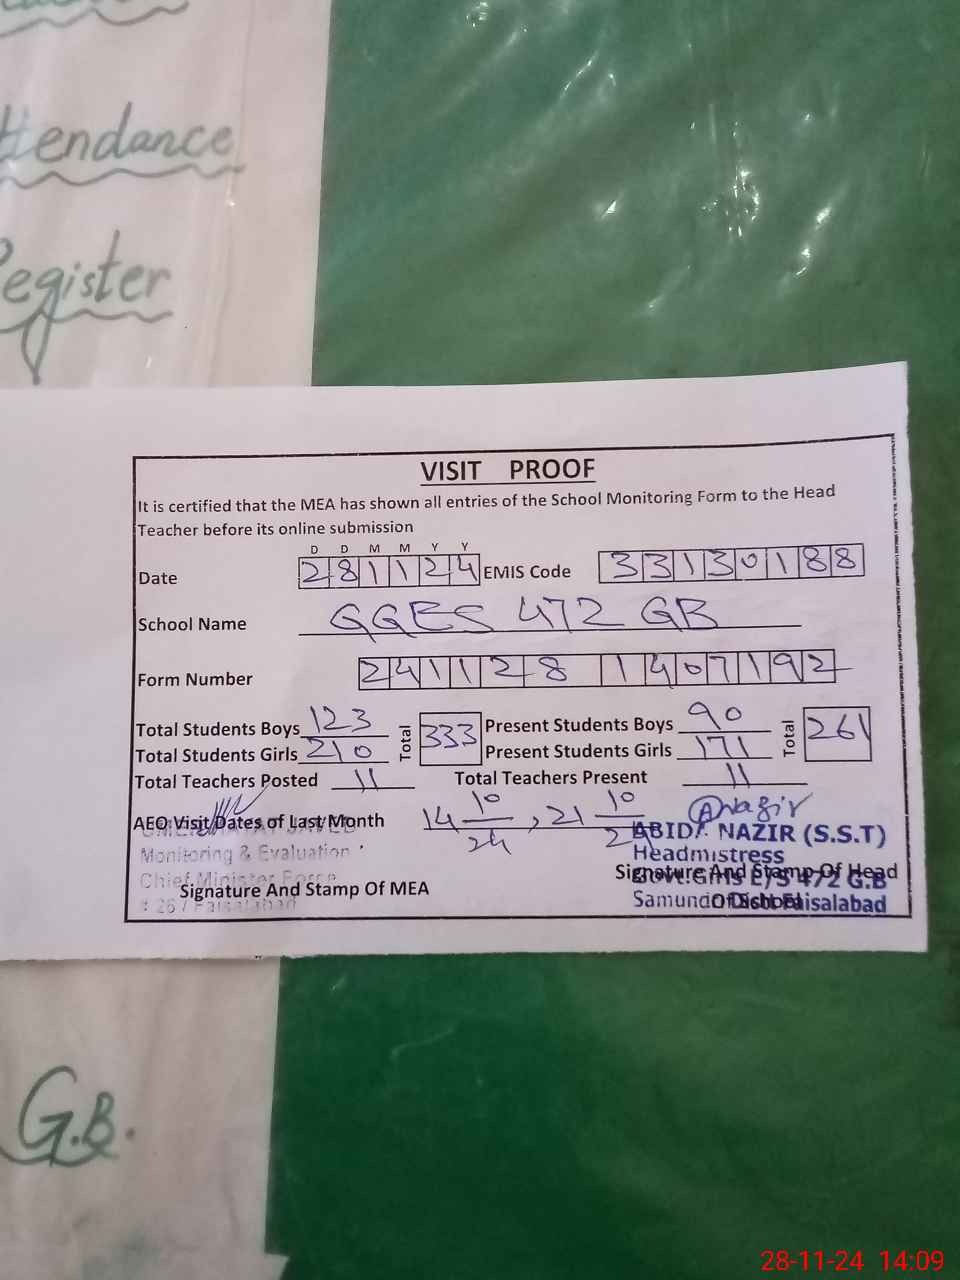 Attendance
Register
VISIT PROOF
It is certified that the MEA has shown all entries of the School Monitoring Form to the Head
Teacher before its online submission
D D M M Y Y
Date 281124 EMIS Code 33130188
School Name GGES 472 GB
Form Number 241128 1407192
Total Students Boys 123 Total 333 Present Students Boys 90 Total 261
Total Students Girls 210 Present Students Girls 171
Total Teachers Posted 11 Total Teachers Present 11
AEO Visit Dates of Last Month 14 10/24, 21 10/24
ABIDA NAZIR (S.S.T)
Monitoring & Evaluation
Headmistress
Chief Minister Force
Signature And Stamp Of Head
Signature And Stamp Of MEA
Govt. Girls E/S 472 G.B
# 267 Faisalabad
Of School
Samundri Distt Faisalabad
G.B.
28-11-24 14:09